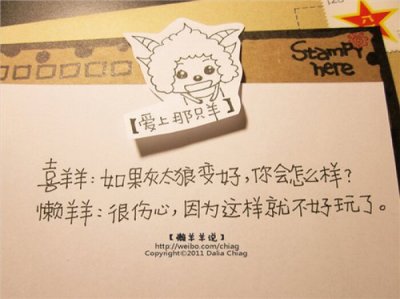 STAMP
here
【爱上那只羊】
喜羊羊：如果灰太狼变好，你会怎么样？
懒羊羊：很伤心，因为这样就不好玩了。
【懒羊羊说】
http://weibo.com/chiag
Copyright©2011 Dalia Chiag